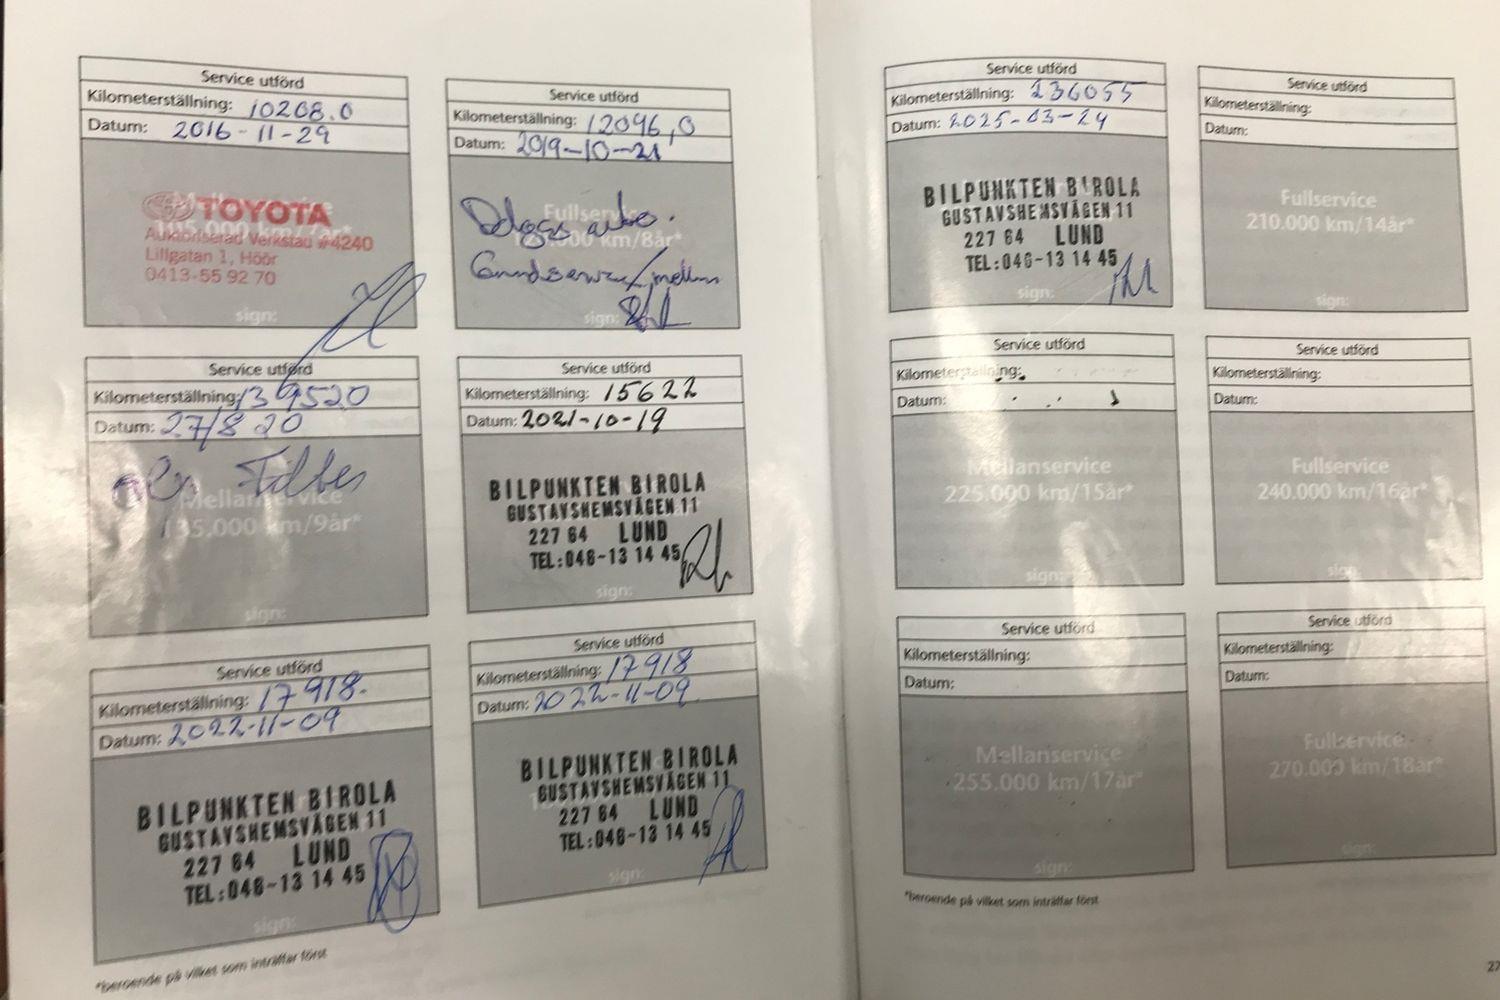 Service utförd
Kilometerställning: 10208.0
Datum: 2016-11-29
TOYOTA
Auktoriserad Verkstad #4240
Lillgatan 1, Höör
0413-55 92 70
sign:
Service utförd
Kilometerställning: 12096,0
Datum: 2019-10-21
Fullservice
km/8år*
sign:
Service utförd
Kilometerställning: 139520
Datum: 27/8 20
Mellanservice
135.000 km/9år*
sign:
Service utförd
Kilometerställning: 15622
Datum: 2021-10-19
BILPUNKTEN BIROLA
GUSTAVSHEMSVÄGEN 11
227 64 LUND
TEL:046-13 14 45
sign:
Service utförd
Kilometerställning: 17918.
Datum: 2022-11-09
BILPUNKTEN BIROLA
GUSTAVSHEMSVÄGEN 11
227 64 LUND
TEL:046-13 14 45
sign:
Service utförd
Kilometerställning: 17918
Datum: 2022-11-09
BILPUNKTEN BIROLA
GUSTAVSHEMSVÄGEN 11
227 64 LUND
TEL:046-13 14 45
sign:
*beroende på vilket som inträffar först
Service utförd
Kilometerställning: 236055
Datum: 2025-03-24
BILPUNKTEN BIROLA
GUSTAVSHEMSVÄGEN 11
227 64 LUND
TEL:046-13 14 45
sign:
Service utförd
Kilometerställning:
Datum:
Fullservice
210.000 km/14år*
sign:
Service utförd
Kilometerställning:
Datum:
Mellanservice
225.000 km/15år*
sign:
Service utförd
Kilometerställning:
Datum:
Fullservice
240.000 km/16år*
sign:
Service utförd
Kilometerställning:
Datum:
Mellanservice
255.000 km/17år*
sign:
Service utförd
Kilometerställning:
Datum:
Fullservice
270.000 km/18år*
sign:
*beroende på vilket som inträffar först
27